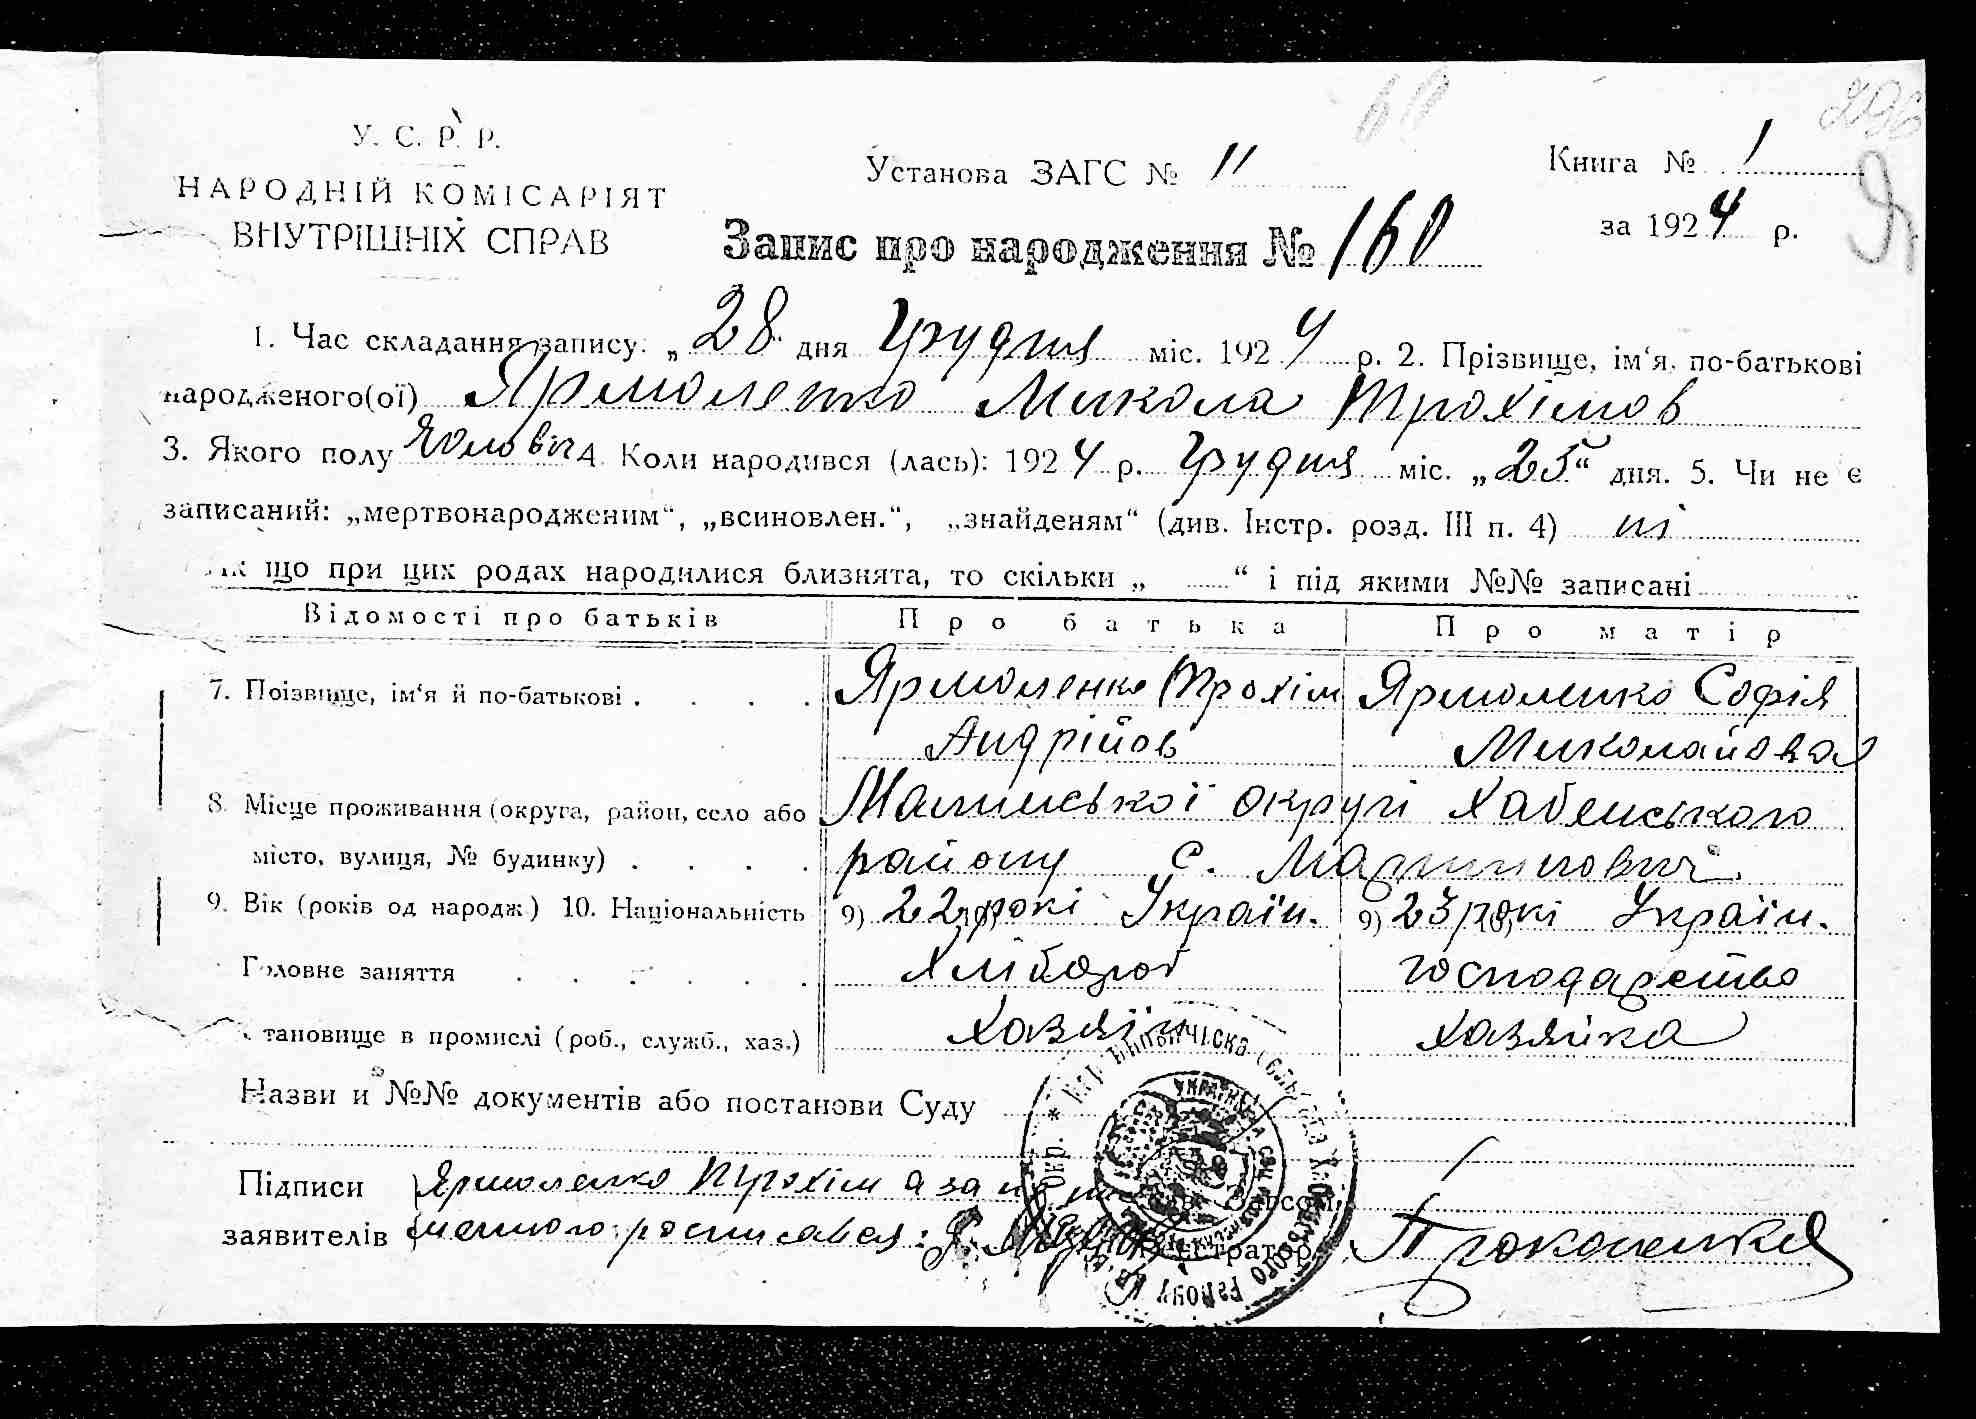 60
296
Я
У. С. Р. Р.
НАРОДНІЙ КОМІСАРІЯТ
ВНУТРІШНІХ СПРАВ
Установа ЗАГС № 11
Книга № 1
за 1924 р.
Запис про народження № 160
1. Час складання запису: „28“ дня Грудня міс. 1924 р. 2. Прізвище, ім‘я, по-батькові
народженого(ої) Ярмоленко Микола Трохімов
3. Якого полу Чоловіч 4. Коли народився (лась): 1924 р. Грудня міс. „25“ дня. 5. Чи не є
записаний: „мертвонародженим“, „всиновлен.“, „знайденям“ (див. Інстр. розд. III п. 4) ні
що при цих родах народилися близнята, то скільки „ “ і під якими №№ записані
Відомості про батьків Про батька Про матір
7. Прізвище, ім‘я й по-батькові . . . . Ярмоленко Трохім Ярмоленко Софія
Андрійов Миколайова
8. Місце проживання (округа, район, село або Малинської округі Хабенського
місто, вулиця, № будинку) . . . . району с. Мартиновичі
9. Вік (років од народж.) 10. Національність 9) 22 рокі Україн. 9) 23 рокі Україн.
Головне заняття . . . . . . Хлібороб господарство
тановище в промислі (роб., служб., хаз.) Хазяїн хазяйка
Назви и №№ документів або постанови Суду
Підписи Ярмоленко Трохім а за
заявителів росписався: Загсом
Реєстратор Прокопенко
окр. * сільська рада Хабенського району
УКРАЇНСЬКА СОЦ